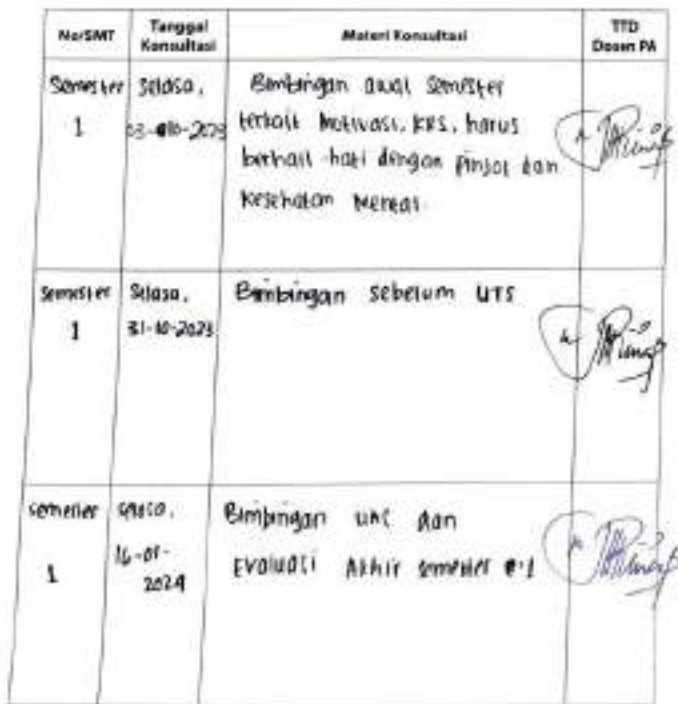 No/SMT
Tanggal
Konsultasi
Materi Konsultasi
TTD
Dosen PA
Semester
1
Selasa,
03-10-2023
Bimbingan awal semester
terkait Motivasi, KRS, harus
berhati-hati dengan pinjol dan
kesehatan mental.
Semester
1
Selasa,
31-10-2023
Bimbingan sebelum UTS
Semester
1
Selasa,
16-01-
2024
Bimbingan UAS dan
Evaluasi Akhir semester